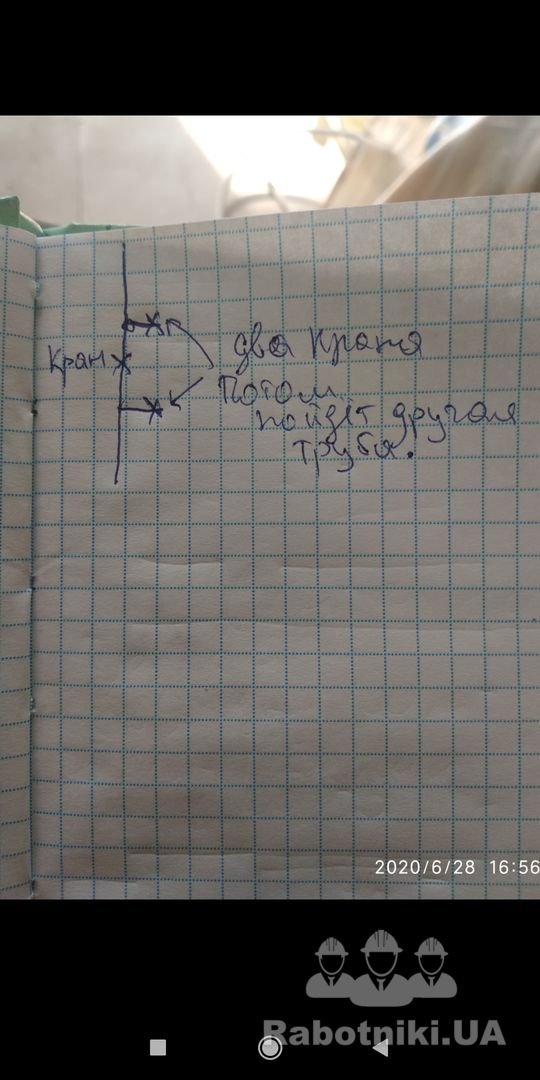 Кран
два крана
Потом
пойдет другая
труба.
2020/6/28 16:56
Rabotniki.UA